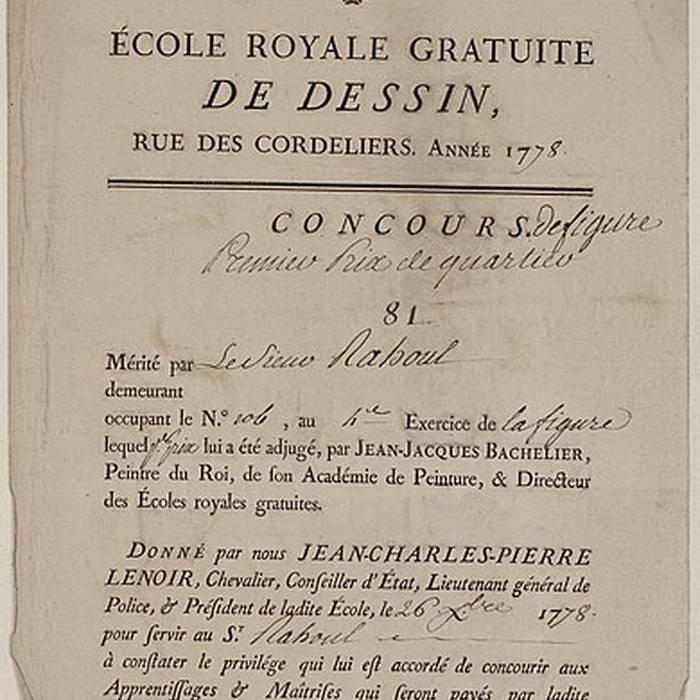 ÉCOLE ROYALE GRATUITE
DE DESSIN,
RUE DES CORDELIERS. ANNÉE 1778.
CONCOURS. de figure
Premier Prix de quartier
81
Mérité par Le Sieur Raboul
demeurant
occupant le N.° 106, au Exercice de la figure
lequel prix lui a été adjugé, par JEAN-JACQUES BACHELIER,
Peintre du Roi, de ſon Académie de Peinture, & Directeur
des Écoles royales gratuites.
DONNÉ par nous JEAN-CHARLES-PIERRE
LENOIR, Chevalier, Conſeiller d'État, Lieutenant général de
Police, & Préſident de ladite École, le 26 Xbre 1778.
pour ſervir au S.r Raboul
à conſtater le privilége qui lui eſt accordé de concourir aux
Apprentiſſages & Maîtriſes qui ſeront payés par ladite